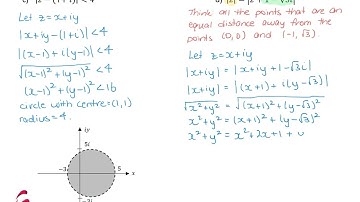 Let z=x+iy
|x+iy-(1+i)|<4
|(x-1)+i(y-1)|<4
√(x-1)²+(y-1)² <4
(x-1)²+(y-1)²<16
circle with centre=(1,1)
radius=4.
iy
5i
-3
5
x
-3i
Think all the points that are an
equal distance away from the
points (0,0) and (-1,√3).
Let z=x+iy
|x+iy| = |x+iy+1-√3i|
|x+iy| = |(x+1)+i(y-√3)|
√x²+y² = √(x+1)²+(y-√3)²
x²+y² = (x+1)²+(y-√3)²
x²+y² = x²+2x+1+